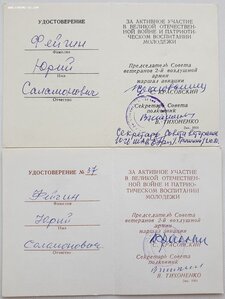 УДОСТОВЕРЕНИЕ
Фейгин
Фамилия
Юрий
Имя
Саламонович
Отчество
ЗА АКТИВНОЕ УЧАСТИЕ
В ВЕЛИКОЙ ОТЕЧЕСТВЕН-
НОЙ ВОЙНЕ И ПАТРИОТИ-
ЧЕСКОМ ВОСПИТАНИИ
МОЛОДЕЖИ
Председатель Совета
ветеранов 2-й воздушной
армии
маршал авиации
С. КРАСОВСКИЙ
Секретарь Совета
полковник
В. ТИХОНЕНКО
Секретарь Совета ветеранов
УДОСТОВЕРЕНИЕ № 37
Фейгин
Фамилия
Юрий
Имя
Саламонович
Отчество
ЗА АКТИВНОЕ УЧАСТИЕ
В ВЕЛИКОЙ ОТЕЧЕСТВЕН-
НОЙ ВОЙНЕ И ПАТРИО-
ТИЧЕСКОМ ВОСПИТАНИИ
МОЛОДЕЖИ
Председатель Совета
ветеранов 2-й воздушной
армии,
маршал авиации
С. КРАСОВСКИЙ
Секретарь Совета
полковник
В. ТИХОНЕНКО